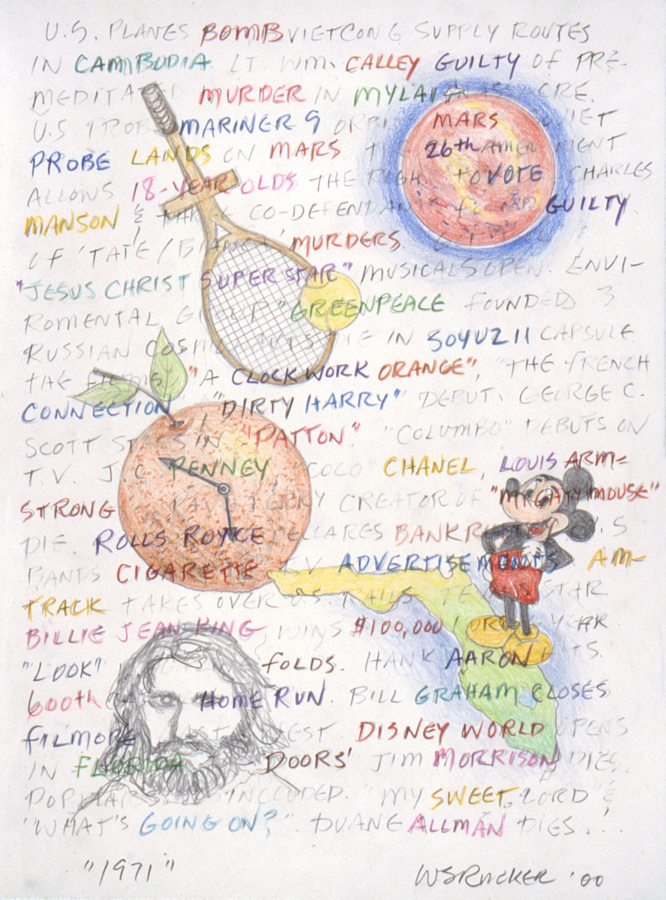 U.S. PLANES BOMB VIETCONG SUPPLY ROUTES
IN CAMBODIA. LT. WM. CALLEY GUILTY OF PRE-
MEDITATED MURDER IN MYLAI
U.S. MARINER 9 MARS
PROBE LANDS ON MARS. 26th
ALLOWS 18-YEAR OLDS THE TO VOTE CHARLES
MANSON & CO-DEFENDANTS GUILTY
OF 'TATE/BIANCA' MURDERS.
"JESUS CHRIST SUPERSTAR" MUSICALS OPEN. ENVI-
ROMENTAL GROUP "GREENPEACE FOUNDED 3
RUSSIAN DIE IN SOYUZ 11 CAPSULE
THE "A CLOCKWORK ORANGE", "THE FRENCH
CONNECTION "DIRTY HARRY" DEBUT. GEORGE C.
SCOTT STARS IN "PATTON". "COLUMBO" DEBUTS ON
T.V. J.C. PENNEY, "COCO" CHANEL, LOUIS ARM-
STRONG CREATOR OF "MIGHTY MOUSE"
DIE. ROLLS ROYCE DECLARES BANKRUPTCY U.S
BANDS CIGARETTE T.V. ADVERTISEMENTS AM-
TRACK TAKES OVER U.S. RAILS. TENNIS STAR
BILLIE JEAN KING, WINS $100,000 YEAR
"LOOK" FOLDS. HANK AARON HITS
600th HOME RUN. BILL GRAHAM CLOSES
FILMORE WEST. DISNEY WORLD OPENS
IN FLORIDA DOORS' JIM MORRISON DIES.
POPULAR INCLUDED. "MY SWEET LORD" &
"WHAT'S GOING ON?" DUANE ALLMAN DIES.
"1971" WSRUCKER '00